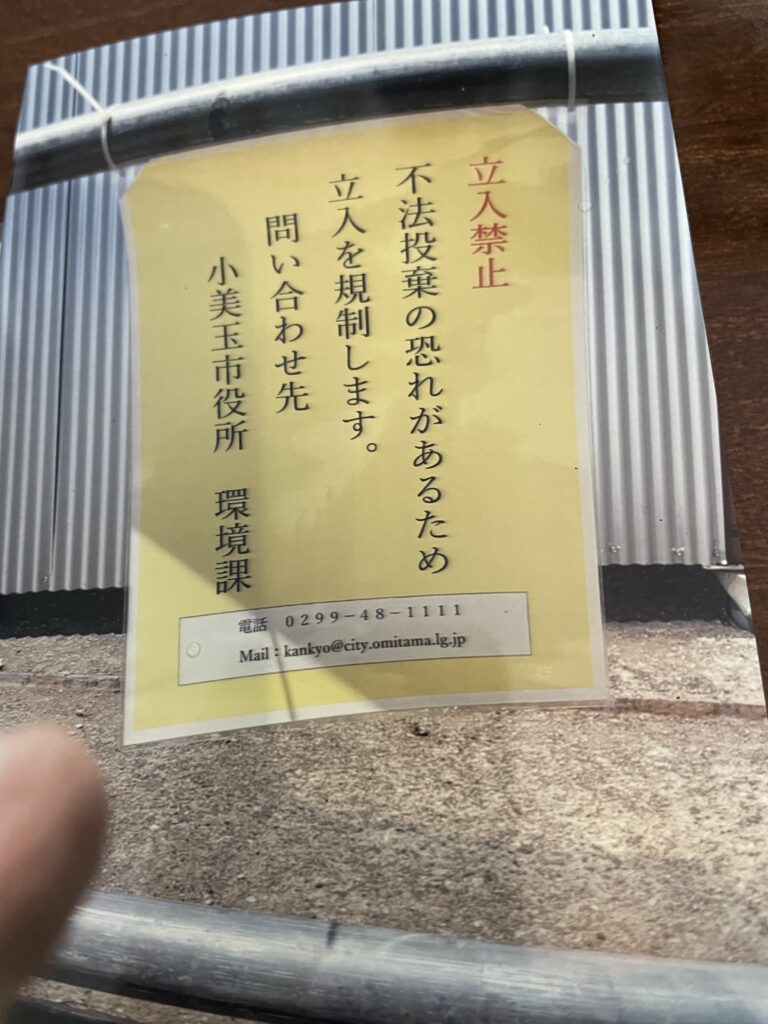 立入禁止
不法投棄の恐れがあるため
立入を規制します。
問い合わせ先
小美玉市役所　環境課
電話　０２９９−４８−１１１１
Mail：kankyo@city.omitama.lg.jp